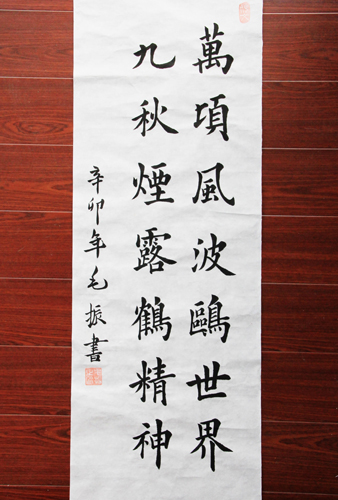 萬頃風波鷗世界
九秋煙露鶴精神
辛卯年毛振書